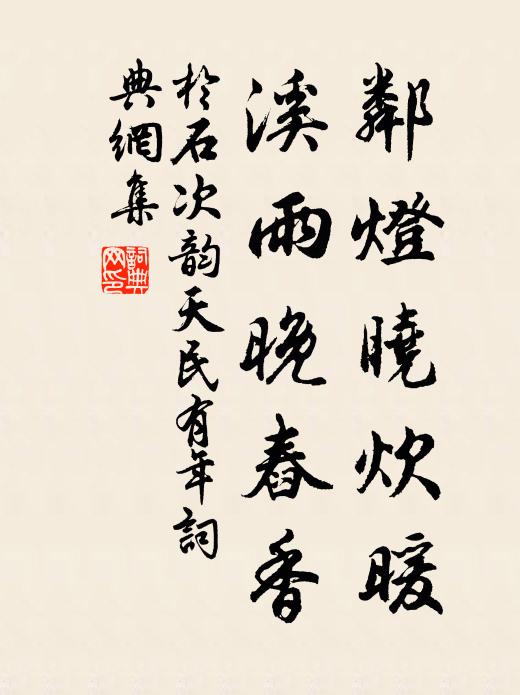 鄰燈曉炊暖
溪雨晚舂香
於石次韵天民有年詞
典網集
詞典網印